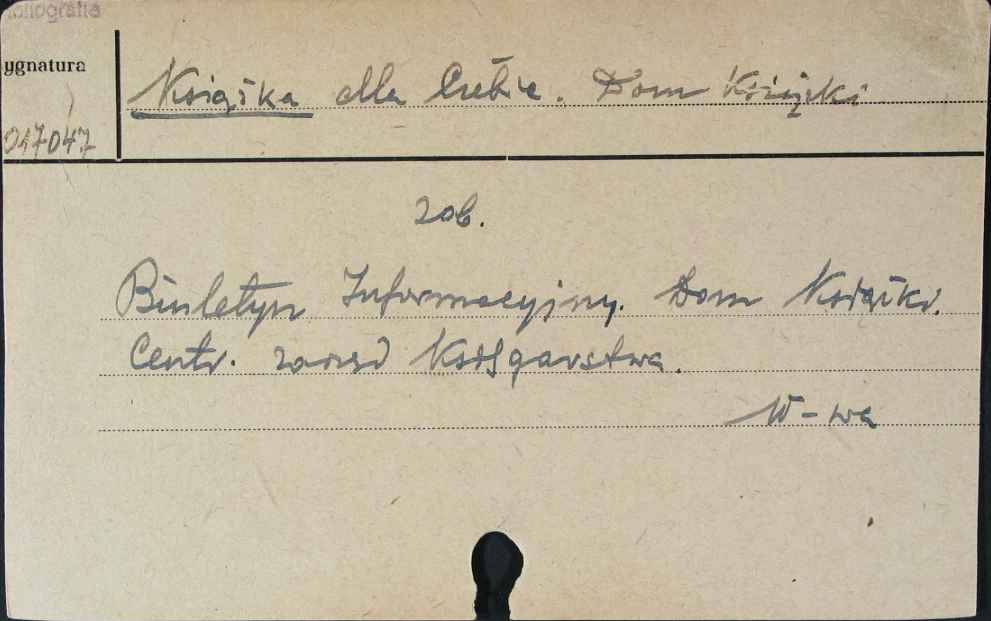 bliografia
ygnatura
Książka dla Ciebie. Dom Książki
017047
zob.
Biuletyn Informacyjny. Dom Książki.
Centr. zarząd Księgarstwa.
W-wa